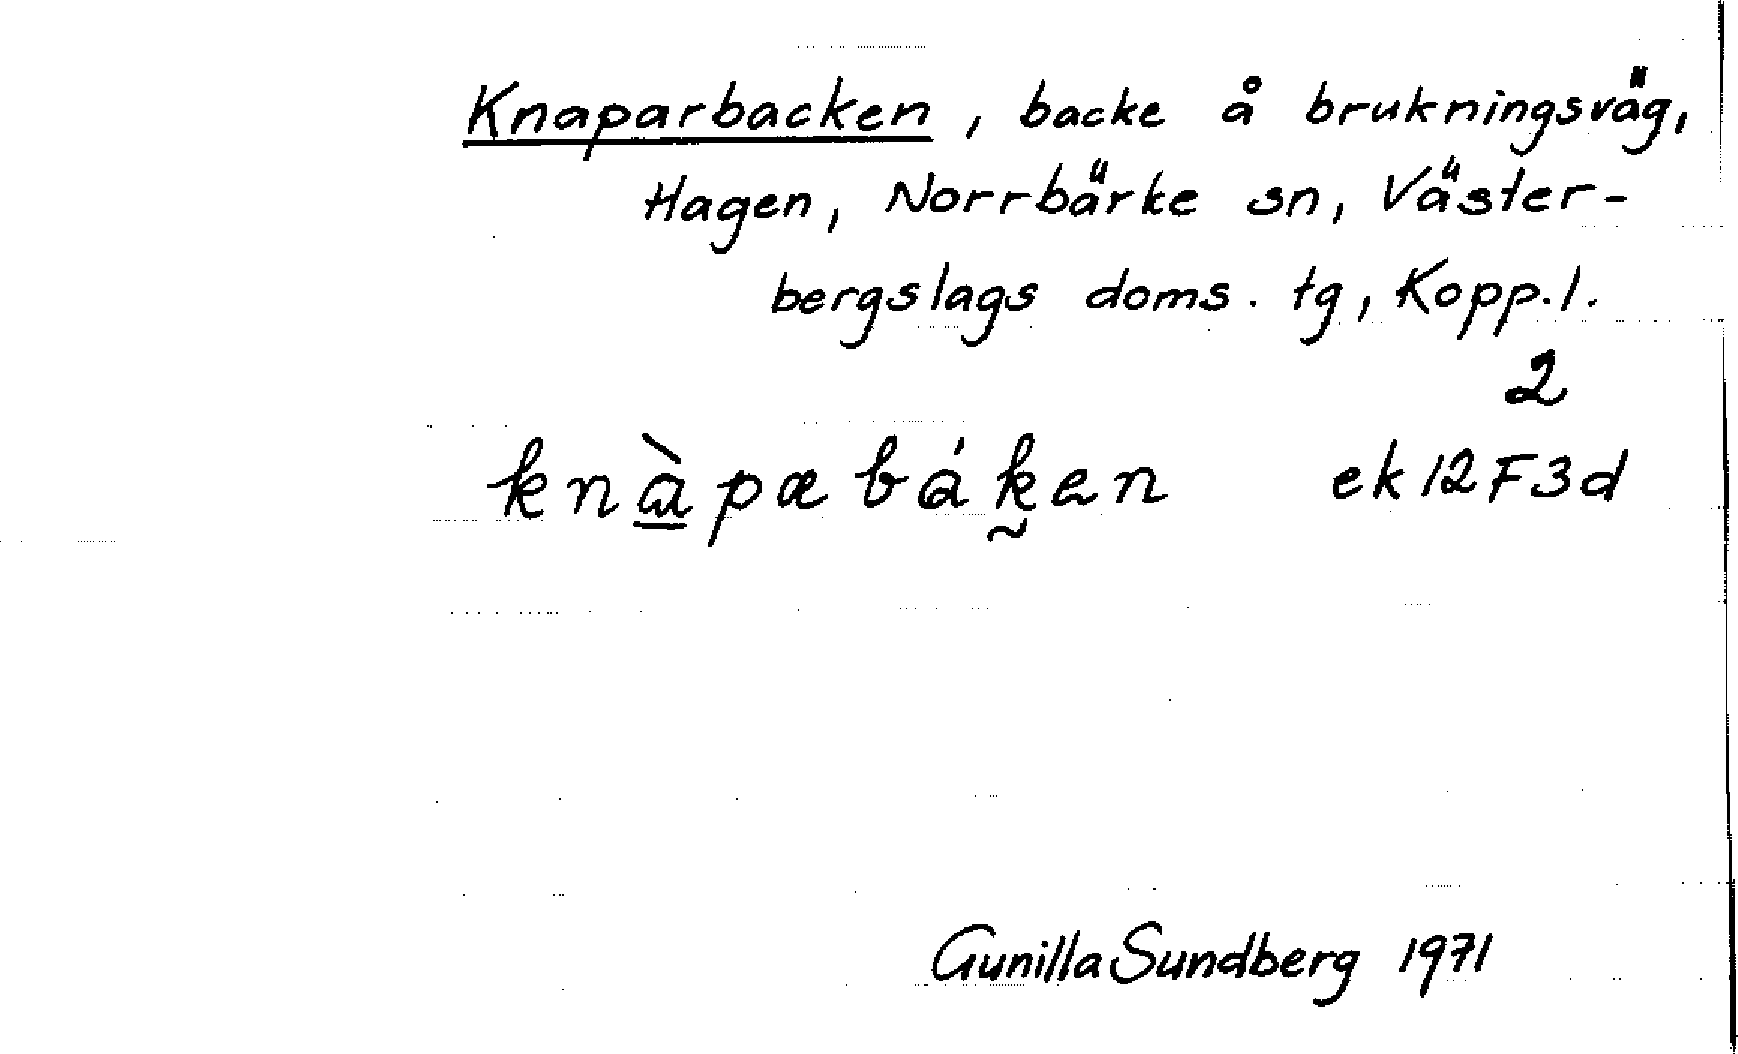 Knaparbacken, backe å brukningsväg,
Hagen, Norrbärke sn, Väster-
bergslags doms. tg, Kopp. l.
2
knàpæbáken ek 12F3d
Gunilla Sundberg 1971